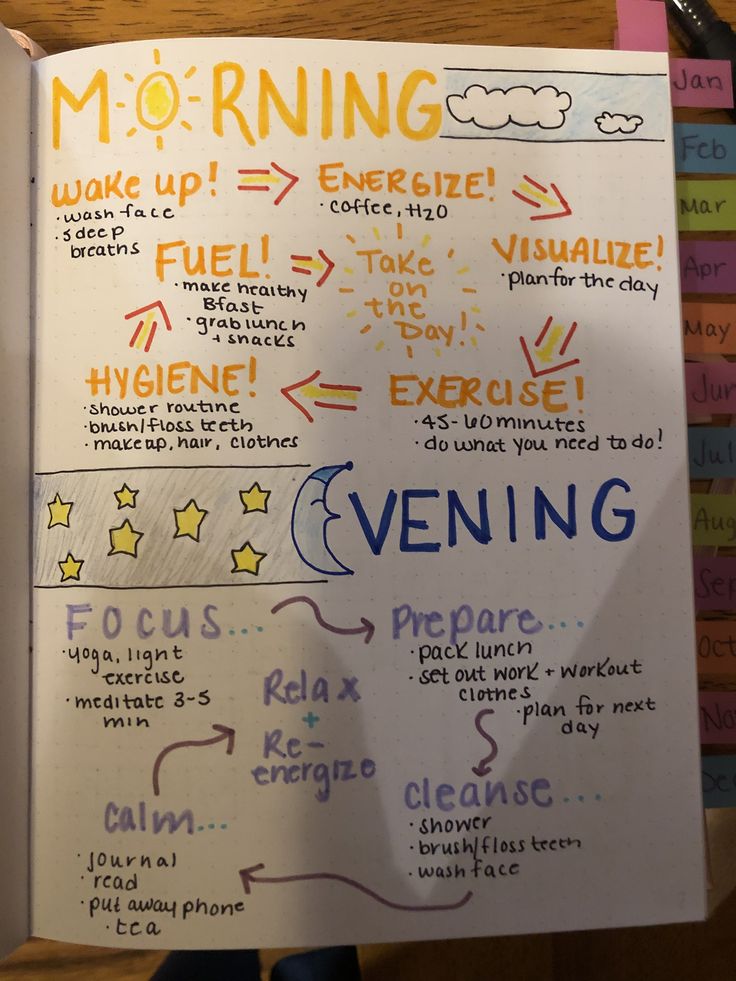 MORNING
wake up!
• wash face
• 5 deep
breaths
ENERGIZE!
• coffee, H2O
VISUALIZE!
• plan for the day
EXERCISE!
• 45-60 minutes
• do what you need to do!
HYGIENE!
• shower routine
• brush/floss teeth
• makeup, hair, clothes
FUEL!
• make healthy
Bfast
• grab lunch
+ snacks
Take
on
the
Day!
EVENING
FOCUS...
• yoga, light
exercise
• meditate 3-5
min
Prepare...
• pack lunch
• set out work + workout
clothes
• plan for next
day
cleanse...
• shower
• brush/floss teeth
• wash face
calm...
• journal
• read
• put away phone
• tea
Relax
+
Re-
energize
Jan
Feb
Mar
Apr
May
Jun
Jul
Aug
Sep
Oct
No
De